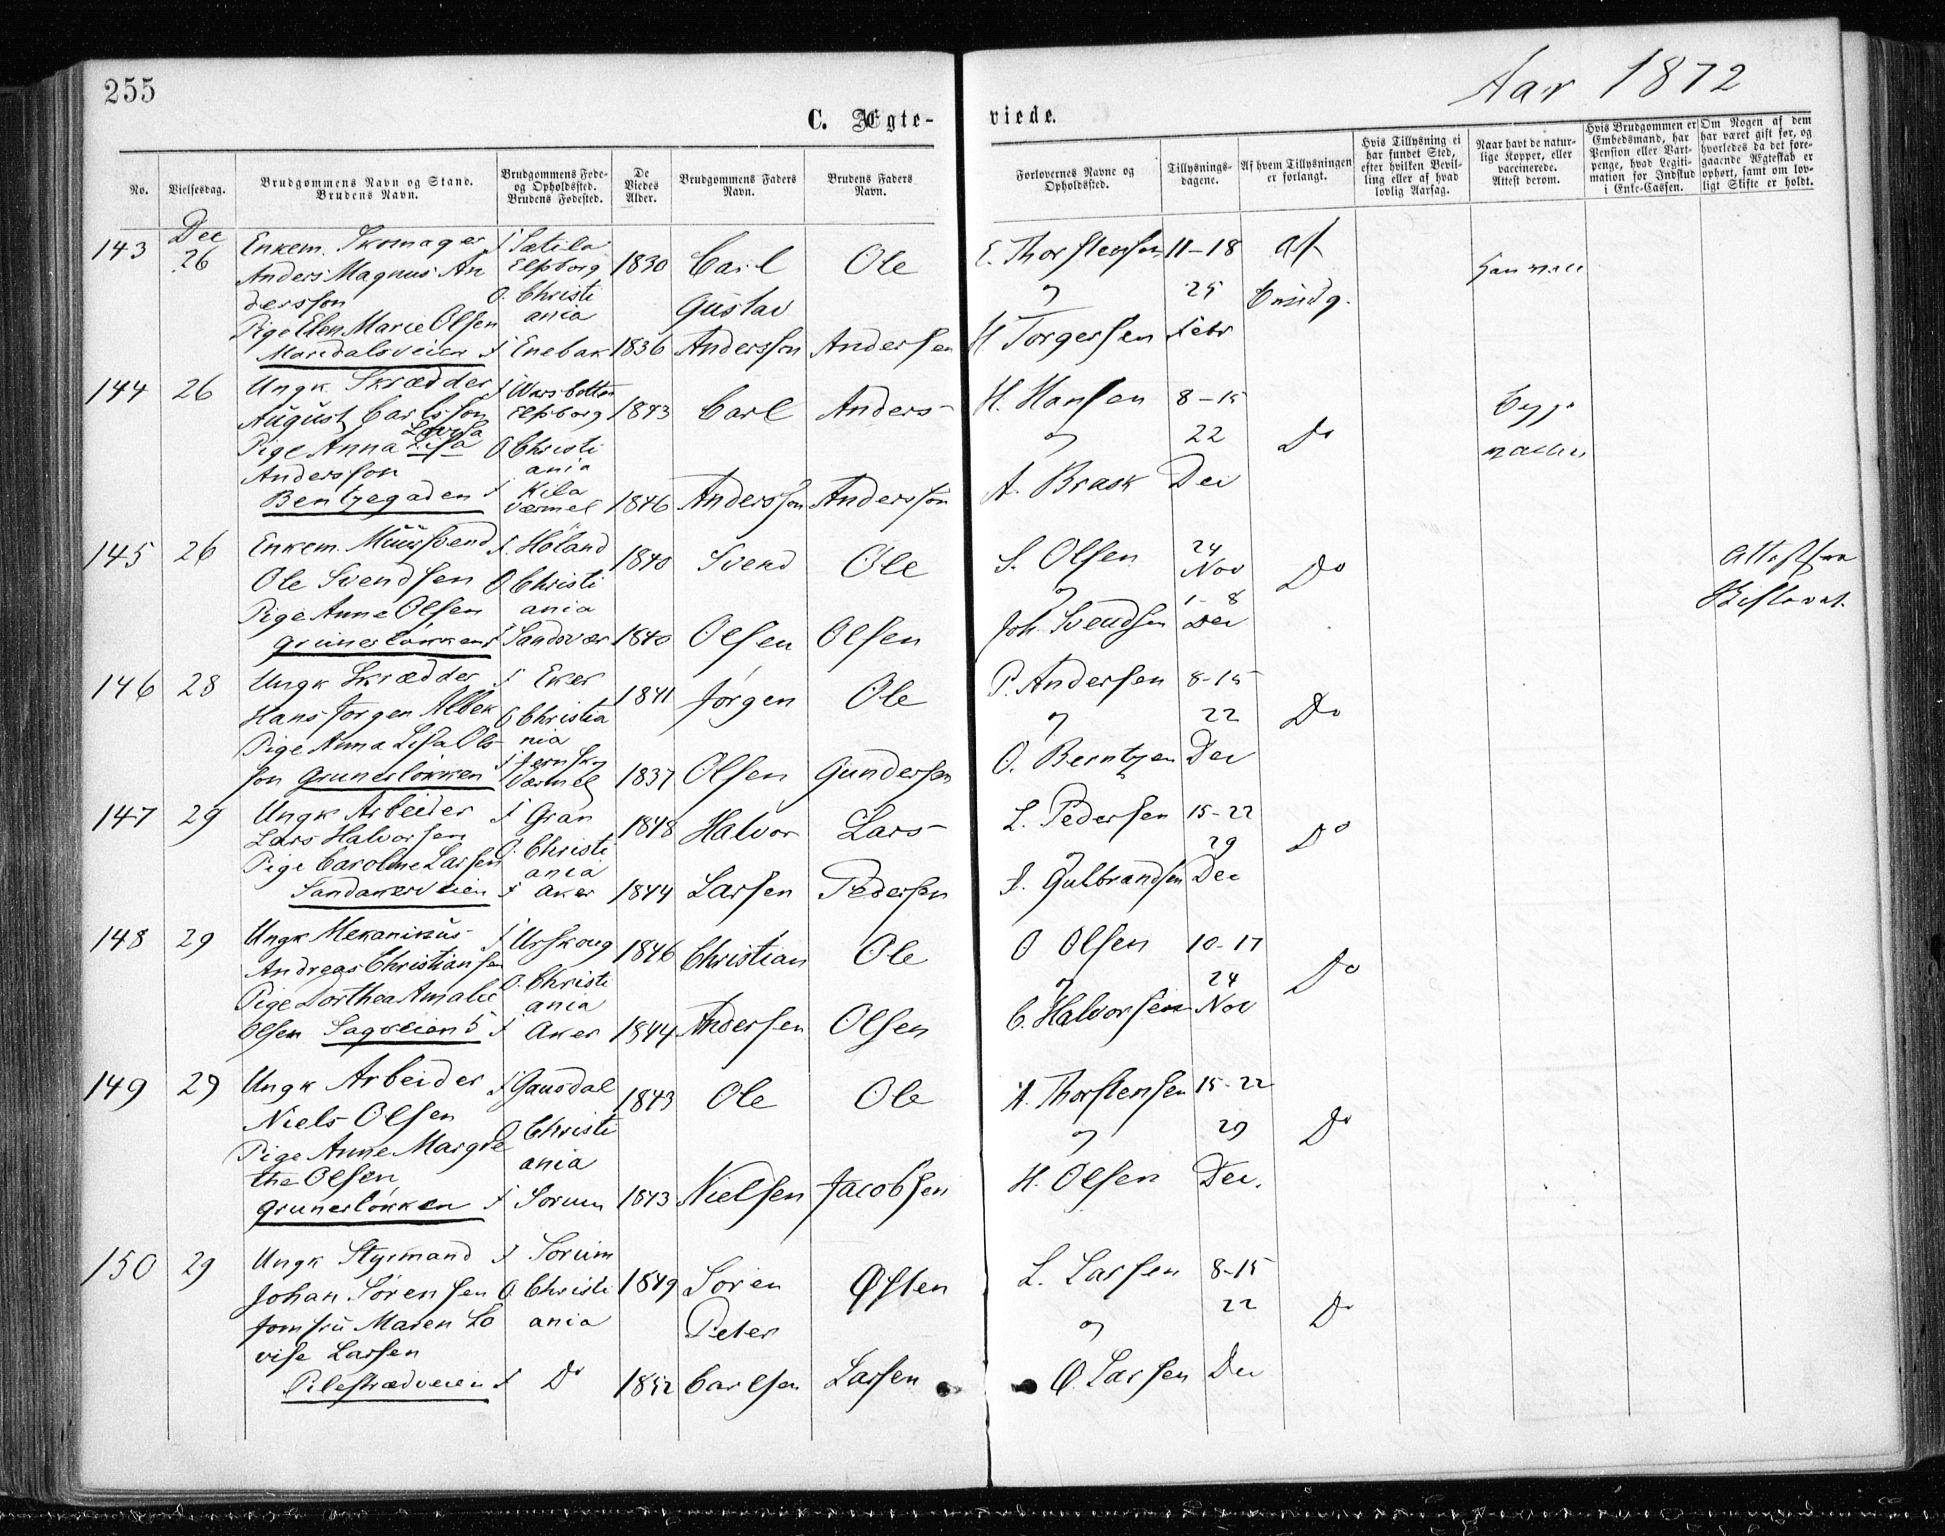 255
Aar 1872
C. Ægte-
viede.
No.
Vielsesdag.
Brudgommens Navn og Stand.
Brudens Navn.
Brudgommens Føde-
og Opholdssted.
Brudens Fødested.
De
Viedes
Alder.
Brudgommens Faders
Navn.
Brudens Faders
Navn.
Forlovernes Navne og
Opholdssted.
Tillysnings-
dagene.
Af hvem Tillysningen
er forlangt.
Hvis Tillysning ei
har fundet Sted,
efter hvilken Bevil-
ling eller af hvad
lovlig Aarsag.
Naar havt de natur-
lige Kopper, eller
vaccinerede.
Attest derom.
Hvis Brudgommen er
Embedsmand, har
Pension eller Vart-
penge, hvad Legiti-
mation for Indskud
i Enke-Cassen.
Om Nogen af dem
har været gift før, og
hvorledes da det fore-
gaaende Ægteskab er
ophørt, samt om lov-
ligt Skifte er holdt.
143
Dec
26
Enkem. Skomager
Anders Magnus An
dersson
Pige Elen Marie Olsen
Maridalsveien
f Sætila
Elfsborg
O. Christi
ania
f Enebak
1830
1836
Carl
Gustav
Andersson
Ole
Andersen
E. Thorstensen
og
H. Torgersen
11-18
25
Febr
af
Brudg.
144
26
Ungk. Skrædder
August Carlsson
Lovisa
Pige Anna Lisa
Andersson
Bentzegaden
Elfsborg
O Christi
ania
f Kila
Vermel
1843
1846
Carl
Andersson
Anders
Andersson
H. Hansen
og
A. Brask
8-15
22
Dec
Do
Begge
145
26
Enkem. Muursvend
Ole Svendsen
Pige Anne Olsen
Grünerløkken
f. Høland
O Christi
ania
f Sandsvær
1840
1840
Svend
Olsen
Ole
Olsen
S. Olsen
og
Joh. Svendsen
24
Nov
1-8
Dec
Do
Attest fra
146
28
Ungk Skrædder
Hans Jørgen Albek
Pige Anna Lisa Ols-
son Grunerløkken
f Eker
O Christia
nia
f Jernskg
Værmel
1841
1837
Jørgen
Olsen
Ole
Gundersen
P. Andersen
og
O. Berntzen
8-15
22
Dec
Do
147
29
Ungk Arbeider
Lars Halvorsen
Pige Caroline Larsen
Sandakerveien
f Gran
O. Christi
ania
f Aker
1848
1844
Halvor
Larsen
Lars
Pedersen
L. Pedersen
og
S. Gulbrandsen
15-22
29
Dec
Do
148
29
Ungk Mekanikus
Andreas Christiansen
Pige Dorthea Amalie
Olsen Sagveien 5
f Urskoug
O. Christi
ania
f Aker
1846
1844
Christian
Andersen
Ole
Olsen
O Olsen
og
C. Halvorsen
10-17
24
Nov
Do
149
29
Ungk Arbeider
Niels Olsen
Pige Anne Margre
the Olsen
Grunerløkken
f Gausdal
O Christi
ania
f Sorum
1843
1843
Ole
Nielsen
Ole
Jacobsen
A. Thorstensen
og
H. Olsen
15-22
29
Dec.
Do
150
29
Ungk Styrmand
Johan Sørensen
Jomfru Maren Lo
vise Larsen
Pilestrædveien
f Sorum
O Christi
ania
f Do
1849
1852
Søren
Peter
Carlsen
Østen
Larsen
L. Larsen
og
O. Larsen
8-15
22
Dec
Do